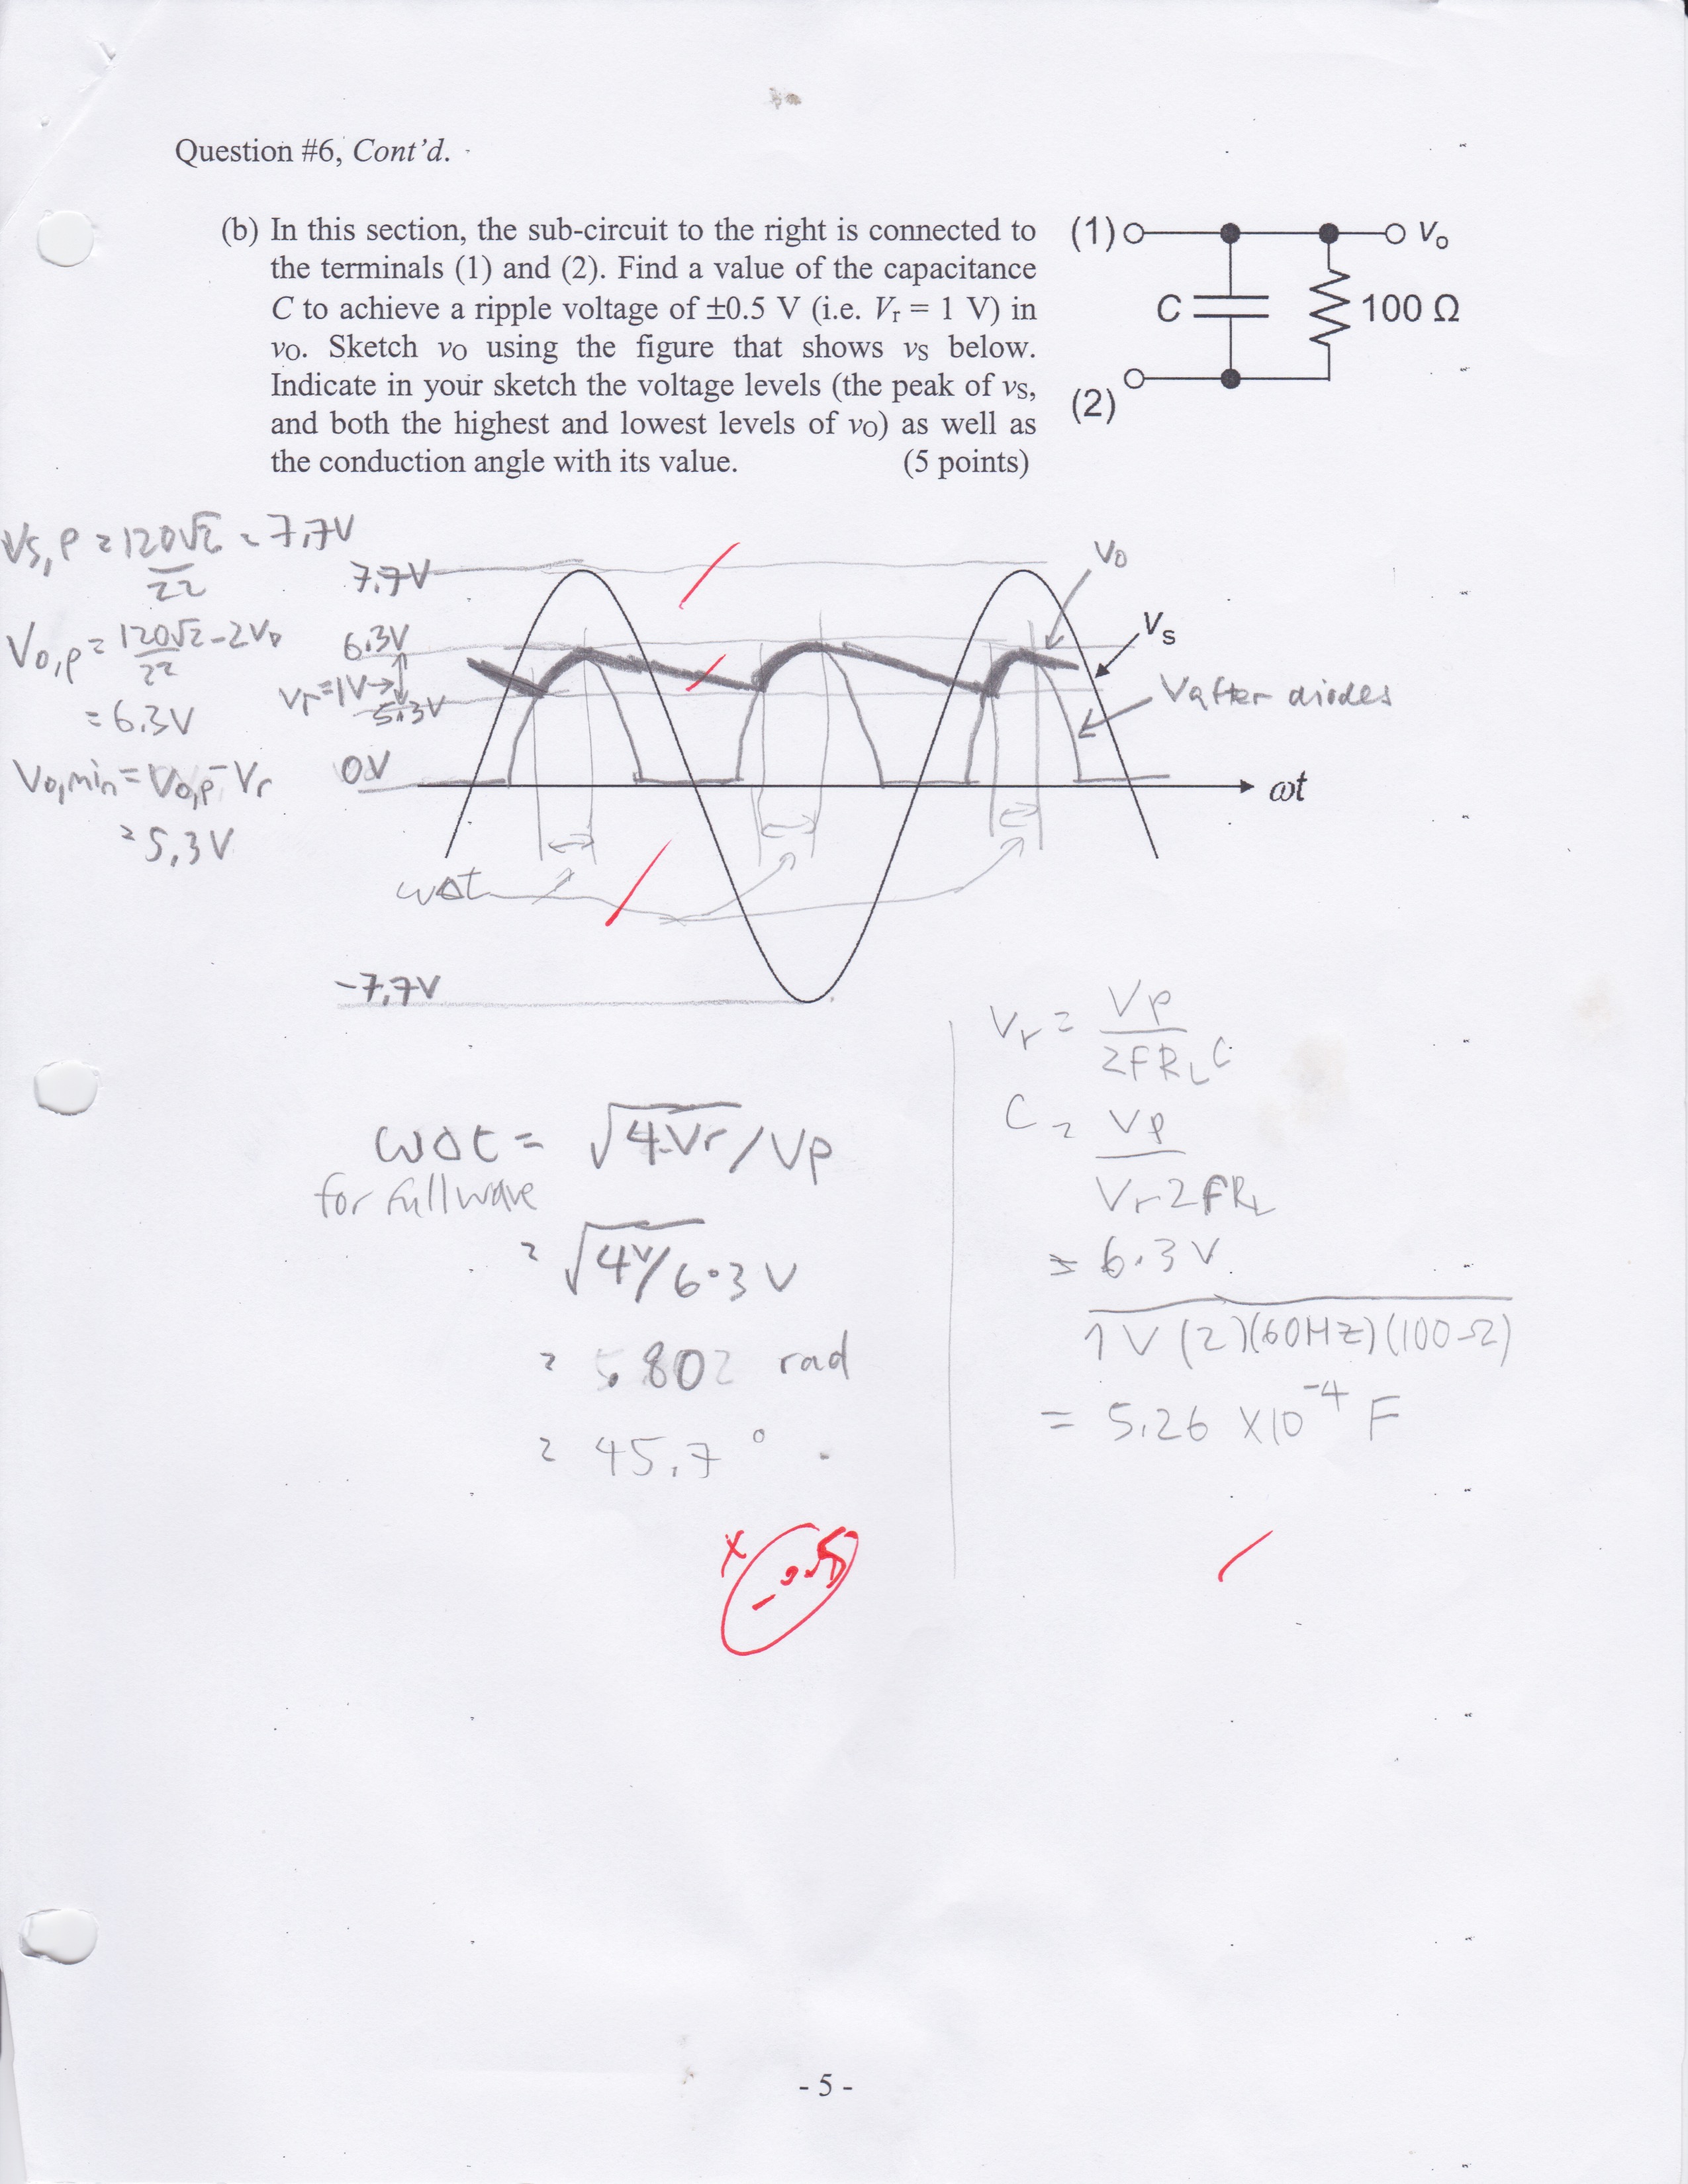 Question #6, Cont'd.
(b) In this section, the sub-circuit to the right is connected to
the terminals (1) and (2). Find a value of the capacitance
C to achieve a ripple voltage of ±0.5 V (i.e. Vr = 1 V) in
vO. Sketch vO using the figure that shows vS below.
Indicate in your sketch the voltage levels (the peak of vS,
and both the highest and lowest levels of vO) as well as
the conduction angle with its value. (5 points)
(1)
Vo
C
100 Ω
(2)
Vs,p = 120√2 = 7.7V
22
Vo,p = 120√2 - 2VD
22
= 6.3V
Vo,min = Vo,p - Vr
= 5.3V
7.7V
6.3V
Vr=1V→
5.3V
0V
-7.7V
Vo
Vs
Vafter diodes
ωt
ωΔt
ωΔt = √4Vr/Vp
for fullwave
= √4V/6.3V
= .802 rad
= 45.7°
x
-0.5
Vr = Vp
2FRLC
C = Vp
Vr2FRL
= 6.3V
1V(2)(60Hz)(100Ω)
= 5.26 X10⁻⁴ F
- 5 -